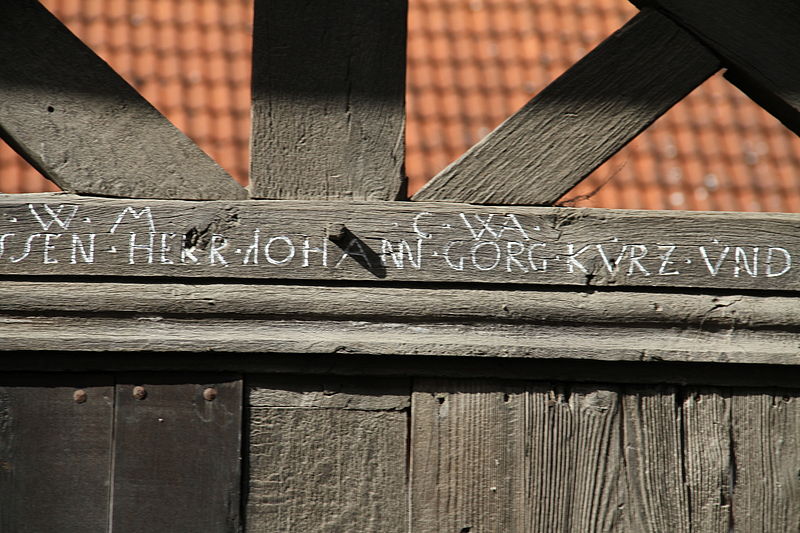 · W · M C · WA ·
SSEN · HERR · IOHANN · GÖRG · KVRZ · VND